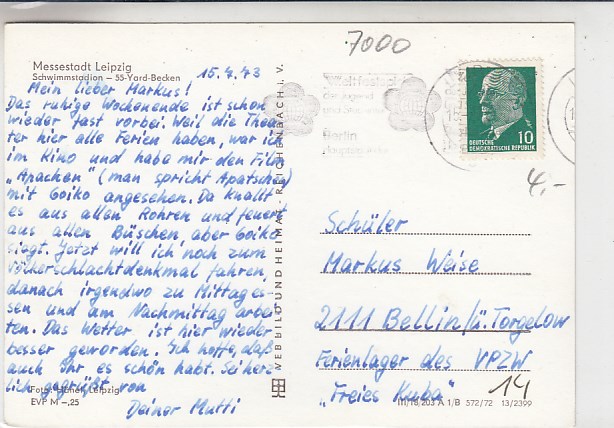 7000
Messestadt Leipzig
Schwimmstadion – 55-Yard-Becken
15.7.73
Mein lieber Markus!
Das ruhige Wochenende ist schon
wieder fast vorbei. Weil die Thea-
ter hier alle Ferien haben, war ich
im Kino und habe mir den Film
"Apachen" (man spricht Apatschen)
mit Goiko angesehen. Da knallt
es aus allen Rohren und feuert
aus allen Büschen, aber Goiko
siegt. Jetzt will ich noch zum
Völkerschlachtdenkmal fahren,
danach irgendwo zu Mittages-
sen und am Nachmittag arbei-
ten. Das Wetter ist hier wieder
besser geworden. Ich hoffe, daß
auch Ihr es schön habt. Sei herz-
lich gegrüßt von
Deiner Mutti
EVP M –,25
VEB BILD UND HEIMAT REICHENBACH i. V.
der Jugend
und Stud
Berlin
Hauptstadt der
10
DEUTSCHE
DEMOKRATISCHE REPUBLIK
4,-
Schüler
Markus Weise
2111 Bellin/ü. Torgelow
Ferienlager des VPZW
"Freies Kuba"
14
III/18/203 A 1/B 572/72 13/2399